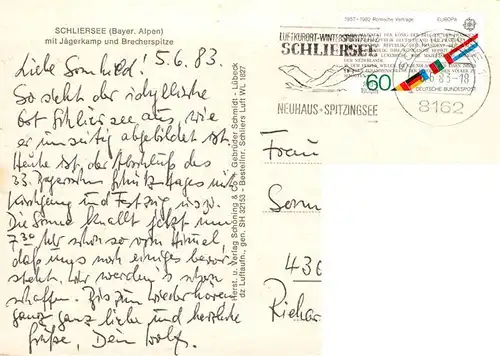 SCHLIERSEE (Bayer. Alpen)
mit Jägerkamp und Brecherspitze
5.6.83.
Liebe Sonnhild!
So sieht der idyllische
Ort Schliersee aus, wie
er umseitig abgebildet ist.
Heute ist der Abschluß des
33. Bayerischen Schützentages mit
und Festzug usw.
Die Sonne knallt jetzt um
7.30 Uhr schon so vom Himmel,
daß uns noch einiges bevor-
steht. Wir werden's schon
schaffen. Bis zum Wiederhören
ganz ganz liebe und herzliche
Grüße, Dein Wolf.
Herst. u. Verlag Schöning & Co + Gebrüder Schmidt - Lübeck
dz Luftaufn., gen. SH 32/53 - Bestellnr. Schliers Luft WL 1827
LUFTKURORT-WINTERSPORTPLATZ
SCHLIERSEE
NEUHAUS-SPITZINGSEE
1957-1982 Römische Verträge
EUROPA
60
DEUTSCHE BUNDESPOST
83-18
8162
Frau
Sonn
436
Richar